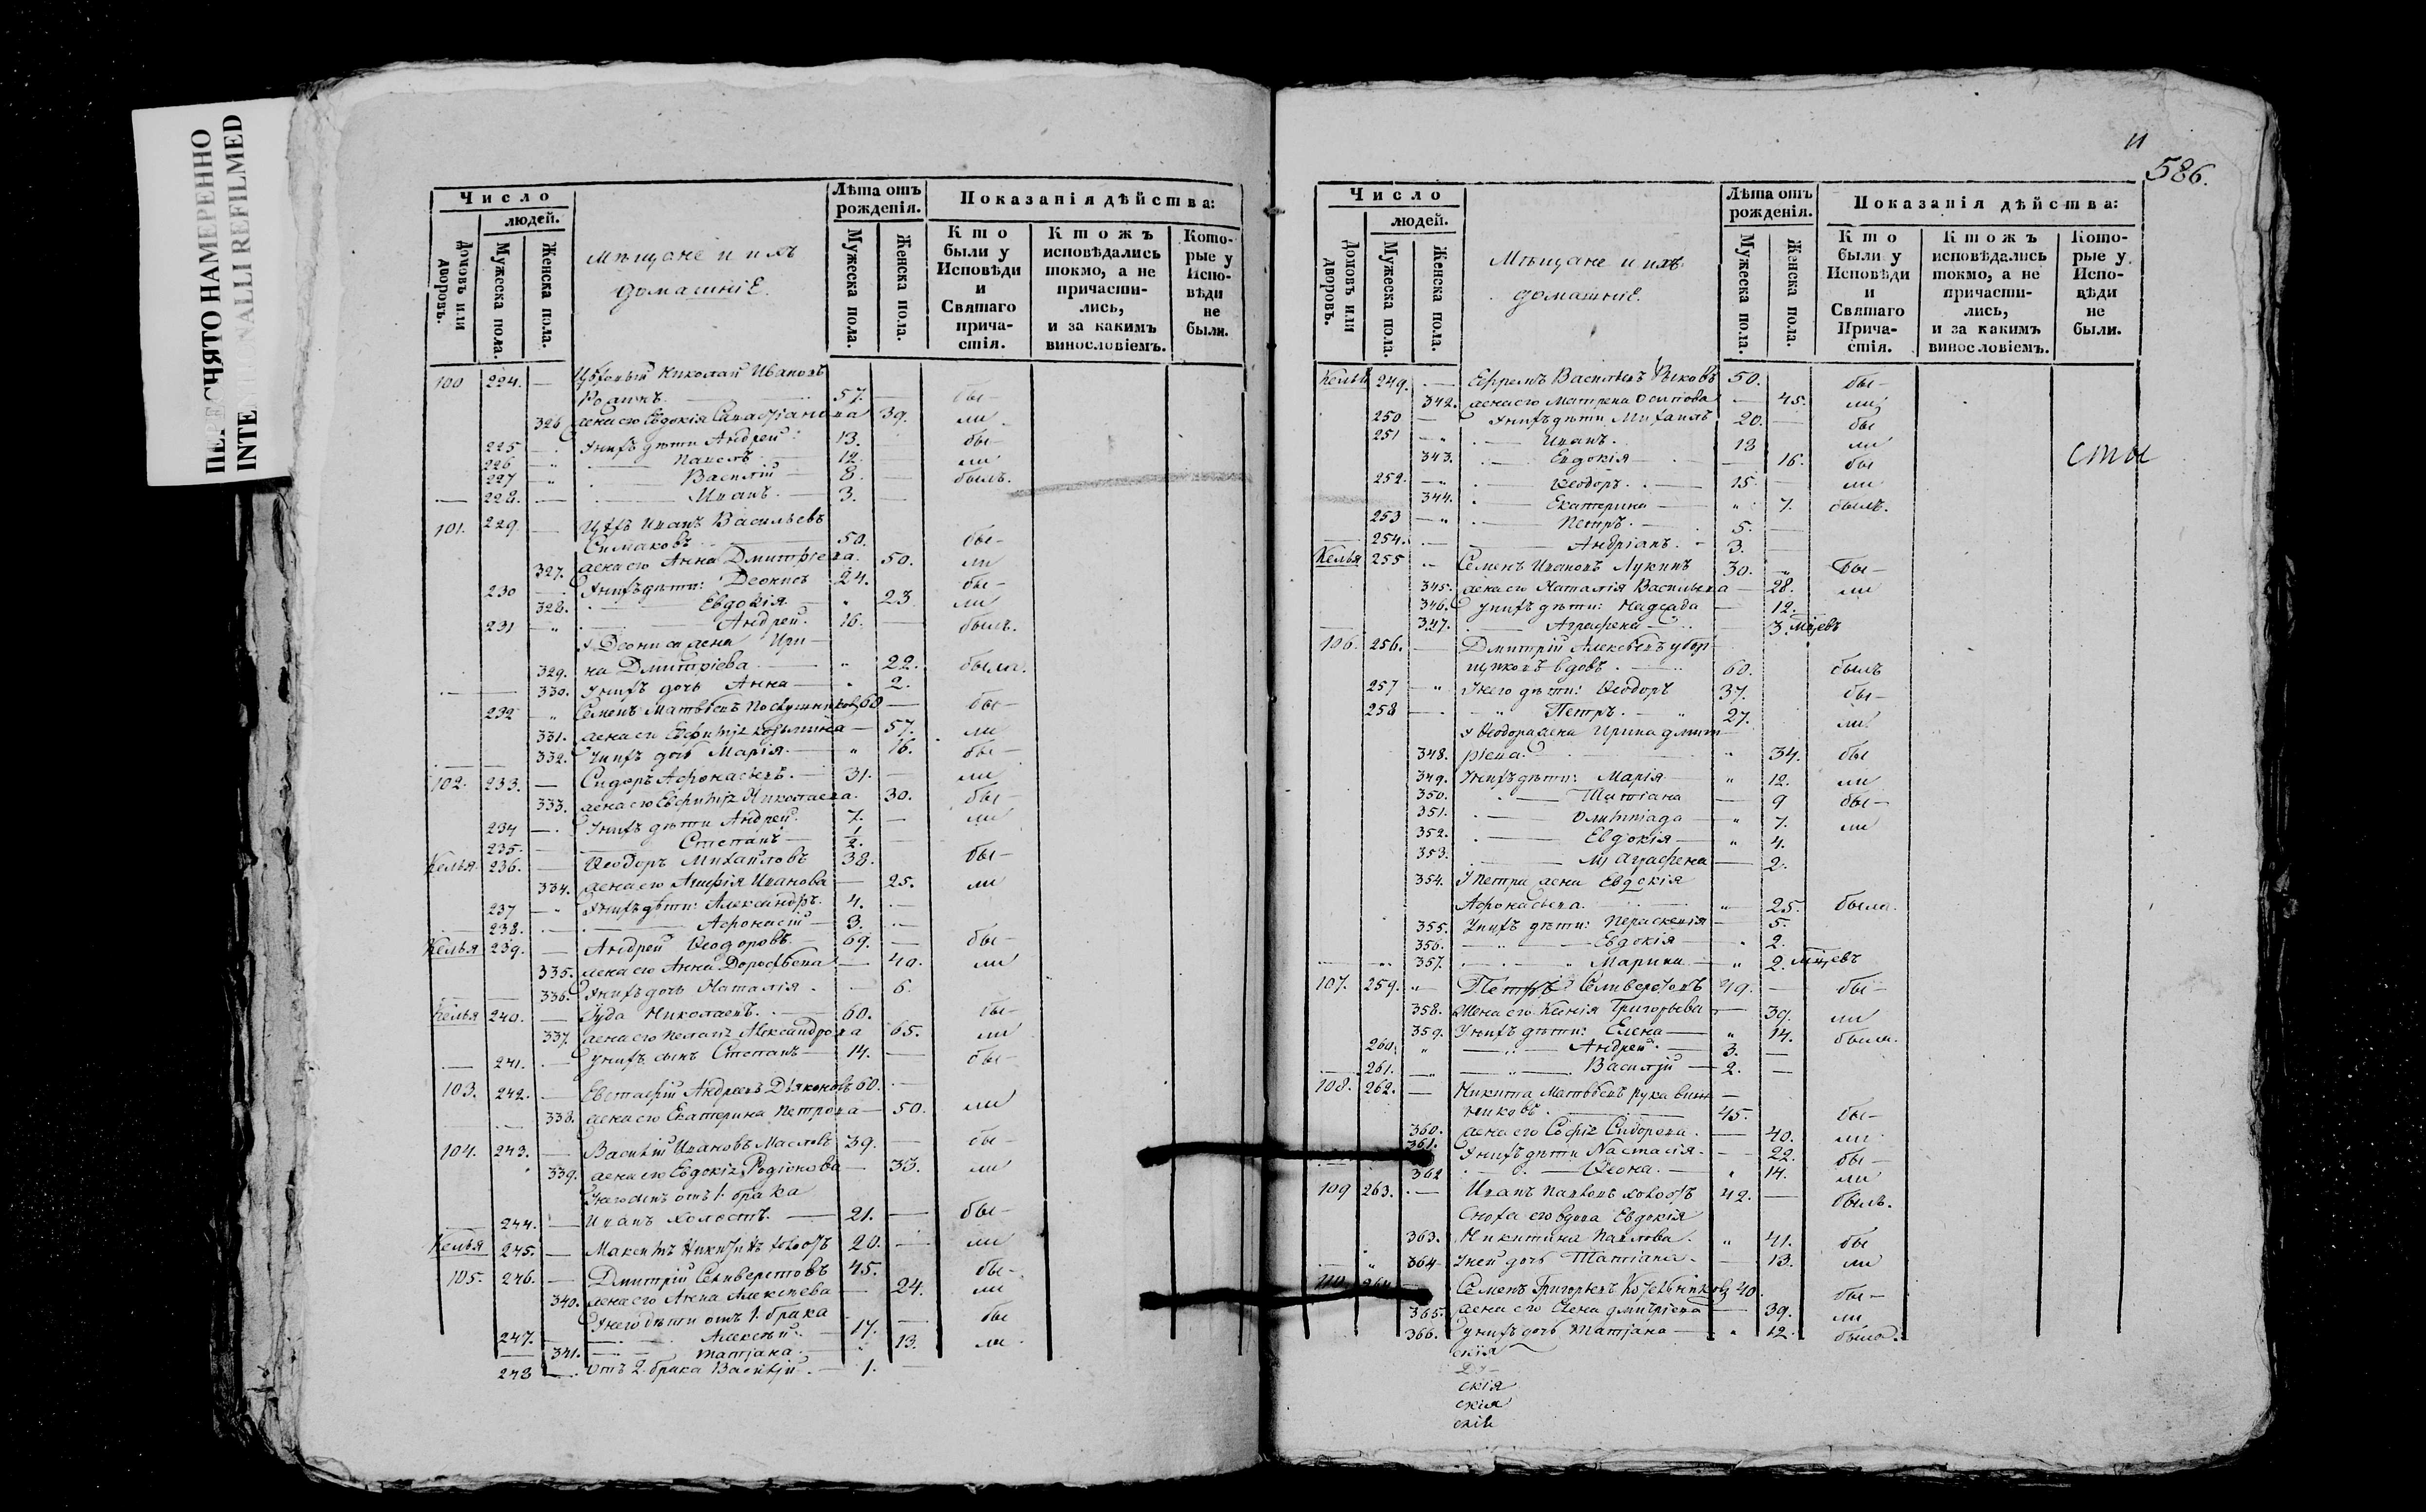 ПЕРЕСНЯТО НАМЕРЕННО
INTE ALLI REFILMED
Число
людей.
Домовъ или дворовъ.
Мужеска пола.
Женска пола.
Мѣщане и ихъ
домашніе.
Лѣта отъ рожденія.
Мужеска пола.
Женска пола.
Показанія дѣйства:
Кто были у Исповѣди и Святаго прича-стія.
Ктожъ исповѣдались токмо, а не причасти-лись, и за какимъ винословіемъ.
Кото-рые у Испо-вѣди не были.
100 224. — Николай Ивановъ
Родинъ. 57. — бы —
326 жена его Евдокія 39. ли
225 — У нихъ дѣти Андрей 13. бы —
226 " — Павелъ — 12. — ли
227 " — Василій — 8. — былъ.
— 228. — Иванъ. — 3. —
101. 229 — Иванъ Васильевъ
Симаковъ 50. бы —
327. жена его Анна Дмитріева. 50. ли
230 — У нихъ дѣти: Деонисъ 24. бы —
328. — Евдокія — " 23 ли
231 " — Андрей. 16. — былъ.
у Деониса жена Ири —
329. на Дмитріева — " 22. была.
— 330. У нихъ дочь Анна — " 2.
232 — " Семенъ Матвѣевъ 60 — бы —
331. жена его 57. ли
332. У нихъ дочь Марія. — " 16. бы —
102. 233. — Сидоръ Афонасьевъ. — 31. — ли
333. жена его Николаева. 30. бы —
234 — У нихъ дѣти Андрей. 7. — ли
235. — Степанъ — 1/2. —
Келья 236. — Ѳеодоръ Михайловъ 38. бы —
334. жена его Иванова — 25. ли
237 — " У нихъ дѣти: Александръ. 4. —
238. — Афонасій — 3. —
Келья 239. — Андрей Ѳеодоровъ. 69. — бы —
335. жена его Анна 49. ли
336. У нихъ дочь Наталія. — 6.
Келья 240. — Іуда Николаевъ. — 60. бы —
337. жена его Александрова 65. ли
— 241. — У нихъ сынъ Степанъ — 14. — бы —
103. 242. — Евстафій Андреевъ Дьяконовъ 60. —
338. жена его Екатерина Петрова — 50. ли
104. 243. — Василій Ивановъ Масловъ 39. — бы —
339. жена его Евдокія Родіонова — 33. ли
У него сынъ отъ 1. брака
— 244. — Иванъ холостъ. — 21. — бы —
Келья 245. — Максимъ Никитинъ 20. — ли
105. 246. — Дмитрій Селиверстовъ 45. бы —
340. жена его Анна Алексѣева — 24. ли
У него дѣти отъ 1. брака — бы
247. — Алексѣй. — 17.
341. — Татіана. — 13. ли
248 — Отъ 2. брака Василій. — 1. —
11
586.
Число
людей.
Домовъ или дворовъ.
Мужеска пола.
Женска пола.
Мѣщане и ихъ
домашніе.
Лѣта отъ рожденія.
Мужеска пола.
Женска пола.
Показанія дѣйства:
Кто были у Исповѣди и Святаго Прича-стія.
Ктожъ исповѣдались токмо, а не причасти-лись, и за какимъ винословіемъ.
Кото-рые у Испо-вѣди не были.
Келья 249. — Ефремъ Васильевъ 50. бы —
342. жена его Матрена Осипова — 45. ли
250 — У нихъ дѣти Михаилъ 20. — бы
251 — " — Иванъ. 18 ли
343. — Евдокія — 16. бы
сты
252. — " Ѳеодоръ. — 15. — ли
344. — Екатерина — " 7. былъ.
253 — " — Петръ. — 5. —
254. — Андріанъ. — 3. —
Келья 255 — Семенъ Ивановъ Лукинъ 30. " бы —
345. жена его Наталія Васильева — 28. ли
346. У нихъ дѣти: 12.
347. — Аграфена — 3. мцевъ
106. 256. — Дмитрій Алексѣевъ
вдовъ. 60. былъ
257 — " У него дѣти: Ѳеодоръ 37. бы —
258 — " Петръ. — " 27. ли
у Ѳеодора жена Ирина Дмит —
348. ріева. " 34. бы
349. У нихъ дѣти: Марія " 12. ли
350. — Татіана — 9 бы —
351. — Олимпіада — " 7. ли
352. — Евдокія — " 4.
353. — Аграфена — 2.
354. У Петра жена Евдокія
Афонасьева. " 25. была.
355. У нихъ дѣти: Параскевія — 5.
356. — Евдокія — " 2.
357. — Марина — " 2. мцевъ
107. 259. " Петръ Селиверстовъ 49. — бы —
358. Жена его Ксенія Григорьева — 39. ли
359. У нихъ дѣти: Елена — " 14. была.
260. " — Андрей. — 3. —
261. — " Василій — 2. —
108. 262. — Никита Матвѣевъ Рукавиш —
никовъ. 45. бы —
360. жена его Софія Сидорова. — 40. ли
361. У нихъ дѣти Настасія. — 22. бы —
362 — 14. ли
109 263. — Иванъ Павловъ холостъ 42. — былъ.
Сноха его вдова Евдокія
363. Никитина Павлова. " 41. бы
364 У ней дочь Татіана — 13. ли
110. 264 Семенъ Григорьевъ 40. бы —
365. жена его Елена Дмитріева — 39. ли
366. У нихъ дочь Татіана — " 12. была.
скія
скія
скія